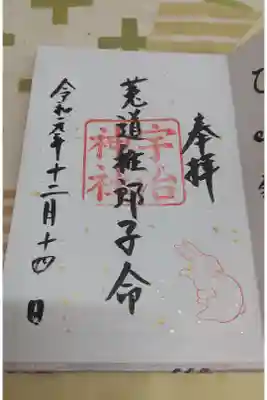 奉拝
宇治
神社
莵道稚郎子命
令和元年十二月十四日